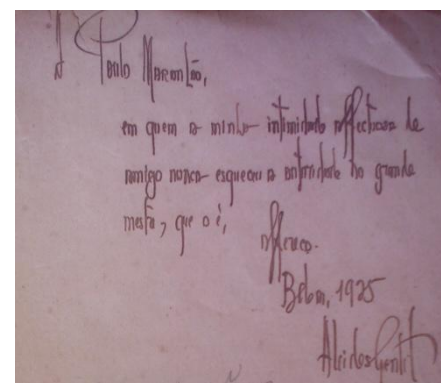 A Paulo Maranhão,
em quem a minha intimidade affectuosa de
amigo nunca esqueceu a autoridade do grande
mestre, que o é,
offereço.
Belem, 1925
Alcides Gentil